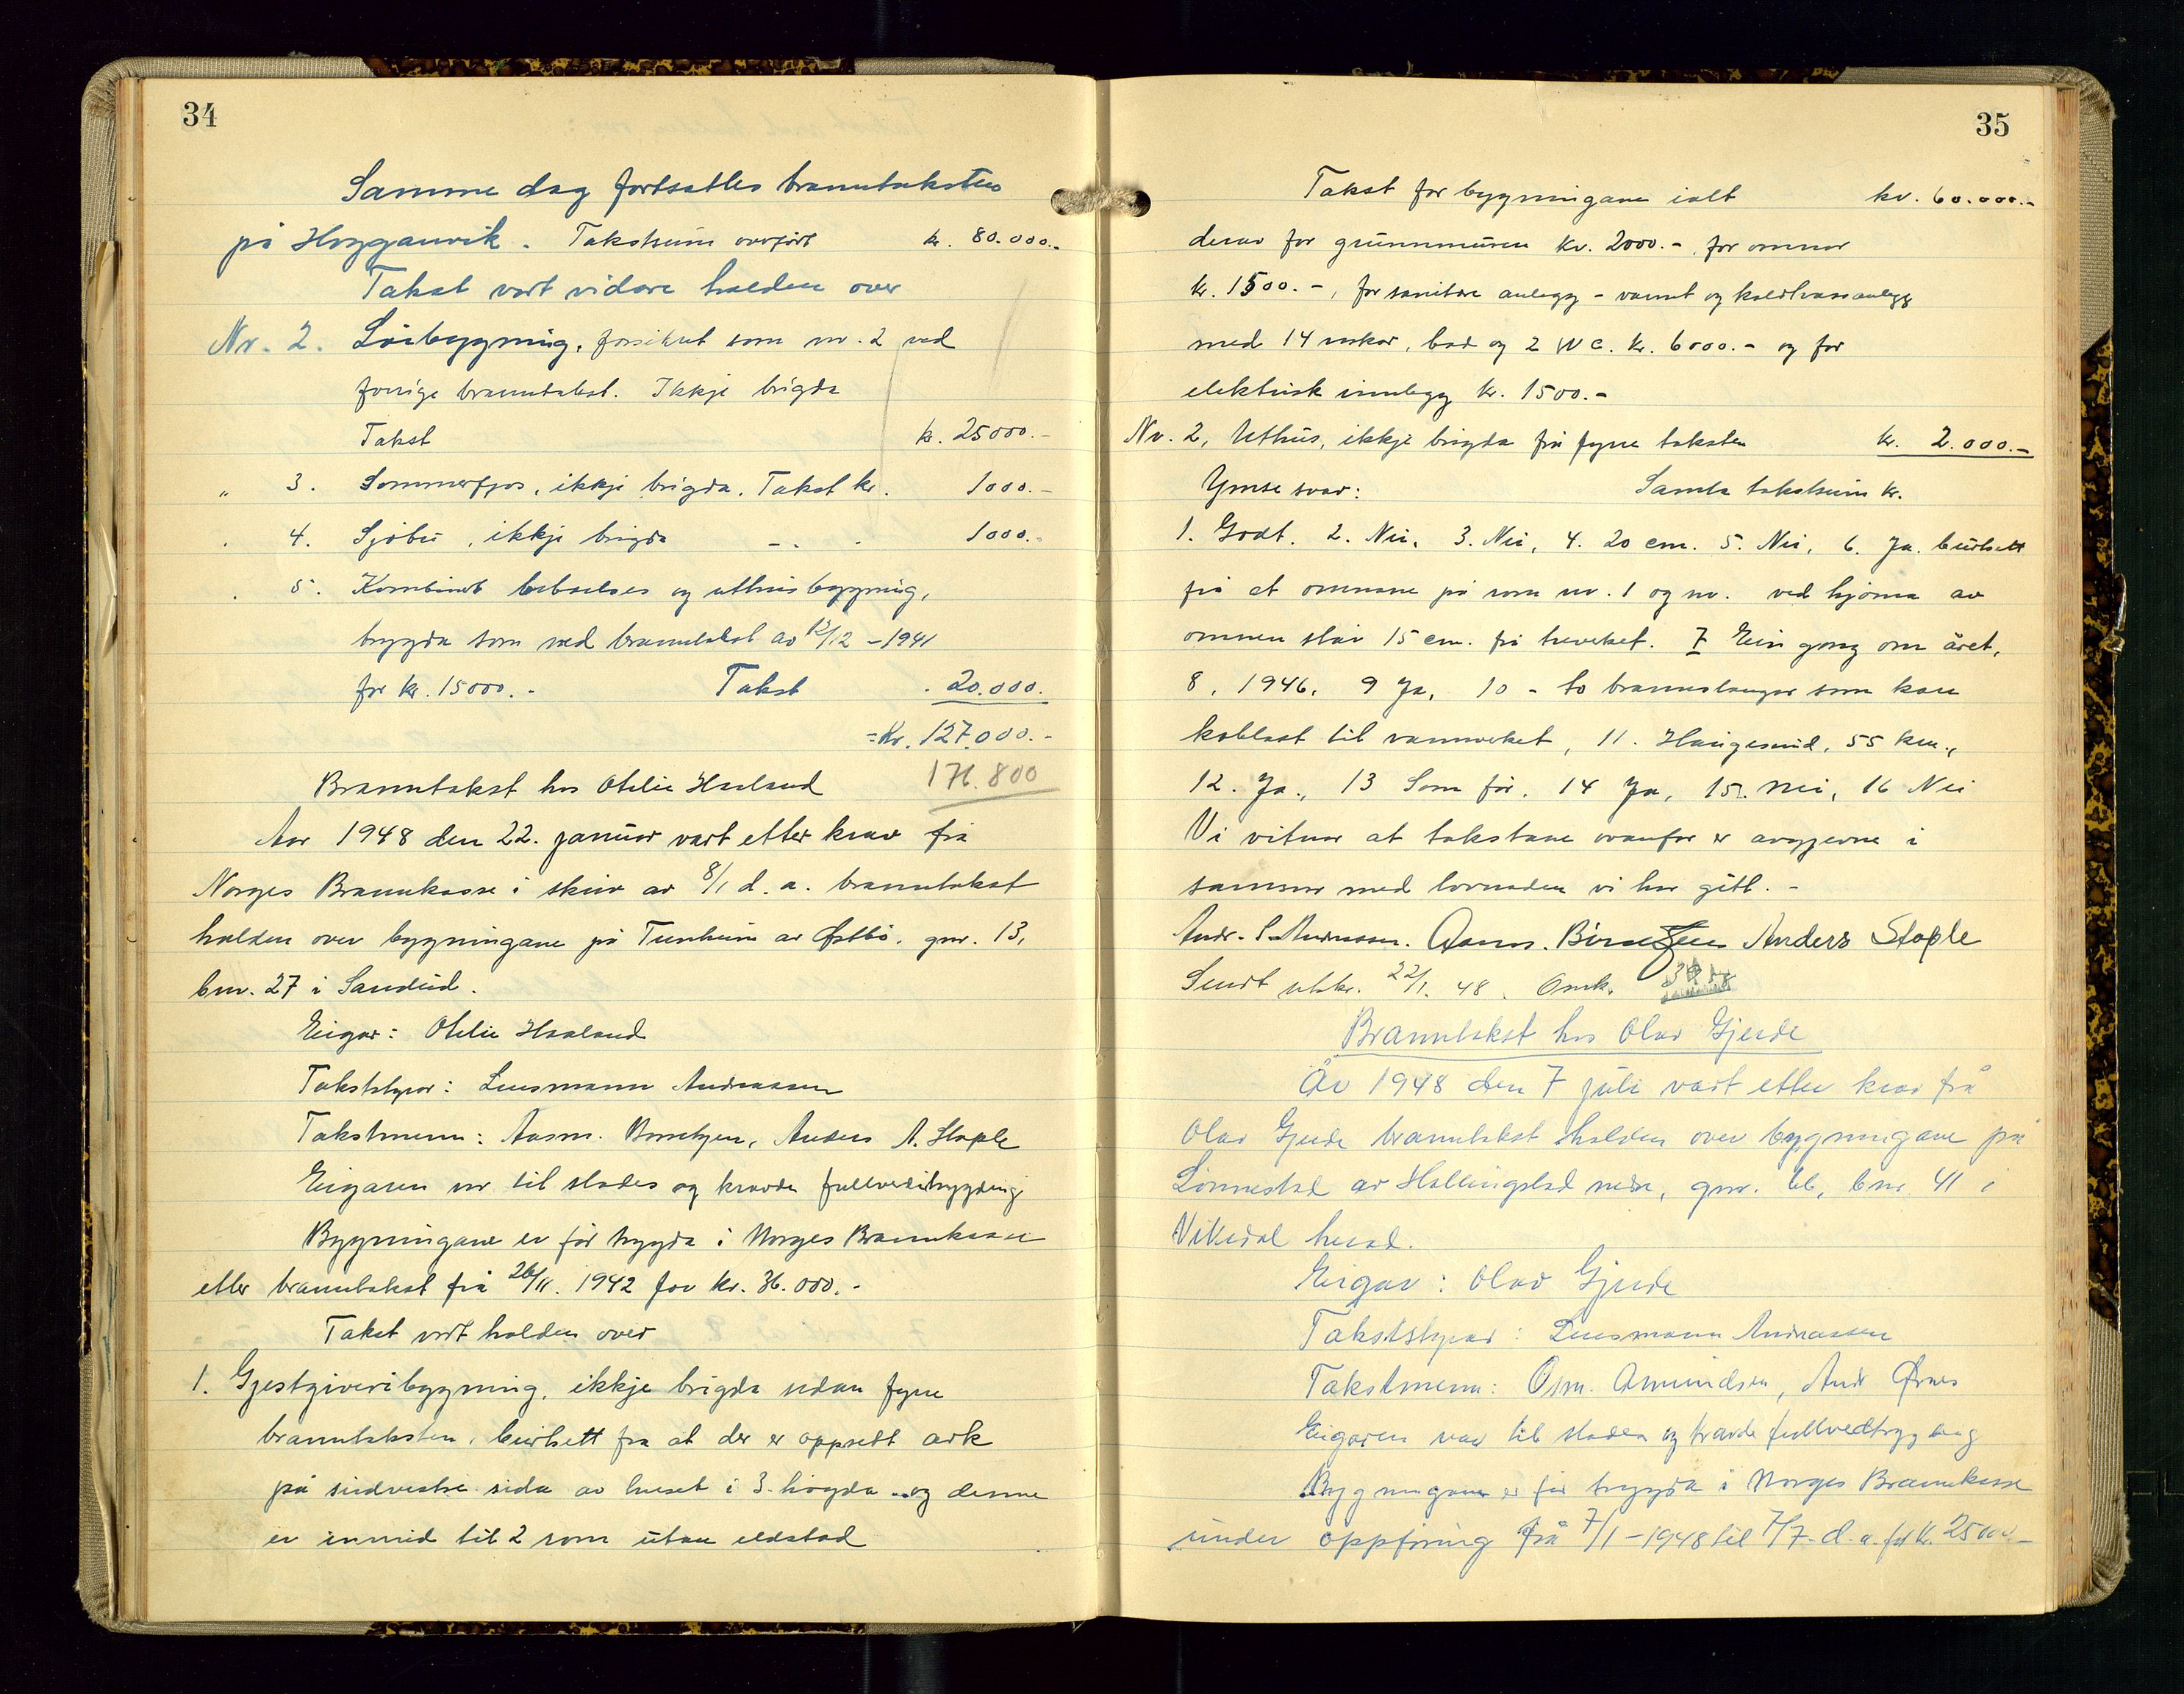 34
Samme dag fortsattes branntaksten
på Hogganvik. Takstsum overført kr. 80.000.-
Takst vart vidare halden over
Nr. 2. Löebygning, forsikret som nr. 2 ved
forrige branntakst. Ikkje brigda
Takst kr. 25000.-
" 3. Sommerfjos, ikkje brigda. Takst kr. 1000.-
4. Sjöbu, ikkje brigda - . - . 1000.-
5. Kombinert beboelses og uthusbygning,
trygda som ved branntakst av 12/12 - 1941
for kr. 15000.- Takst . 20.000.
= Kr. 127.000.-
176.800
Branntakst hos Otelie Haaland
Aar 1948 den 22. januar vart etter krav frå
Norges Brannkasse i skriv av 8/1 d. a. branntakst
halden over bygningane på Tunheim av Østbö, gnr. 13,
bnr. 27 i Sandeid.
Eigar: Otelie Haaland
Takststyrar: Lensmann Andreassen
Takstmenn: Aasm. Anders A. Stople
Eigaren var til stades og kravde fullverditrygding
Bygningane er för trygda i Norges Brannkasse
etter branntakst frå 26/11. 1942 for kr. 36.000.-
Takst vart halden over
1. Gjestgiveribygning, ikkje brigda sidan fyrre
branntaksten, bürtsett fra at der er oppsett ark
på südvestre sida av huset i 3. högda og denne
er innreid til 2 rom ütan eldstad
35
Takst for bygningane ialt kr. 60.000.-
derav for grunnmüren kr. 2000.-, for omnar
kr. 1500.-, for sanitære anlegg - varmt og kaldtvassanlegg
med 14 vaskar, bad og 2 WC. kr. 6000.- og for
elektrisk innlegg kr. 1500.-
Nr. 2, Uthüs, ikkje brigda frå fyrre taksten kr. 2.000.-
Ymse svar: Samla takstsum kr.
1. Godt. 2. Nei, 3. Nei, 4. 20 cm. 5. Nei, 6. Ja. bürtsett
frå at omnane på rom nr. 1 og nr. ved hjörna av
omnen står 15 cm. frå treverket. 7 Ein gong om året,
8. 1946, 9 Ja, 10 - to brannslangar som kan
koblast til vannverket, 11. Haugesund, 55 km.,
12. Ja., 13 Som för. 14 Ja, 15. Nei, 16 Nei
Vi vitnar at takstane ovanfor er avgjevne i
samsvar med lovnaden vi har gitt. -
Andr. S. Andreassen. Aasm. Anders Stople
Sendt utskr. 22/1. 48. Omk.
Branntakst hos Olav Gjerde
År 1948 den 7 juli vart etter krav frå
Olav Gjerde branntakst halden over bygningane på
Lönnestad av Hallingstad nedre, gnr. 66, bnr. 41 i
Vikedal herad.
Eigar: Olav Gjerde
Takststyrar: Lensmann Andreassen
Takstmenn: Osm. Amundsen, Andr Ørnes
Eigaren var til stades og kravde fullverditrygding
Bygningane er för trygda i Norges Brannkasse
ünder oppföring frå 7/1 - 1948 til 7/7- d. a. for kr. 25000.-